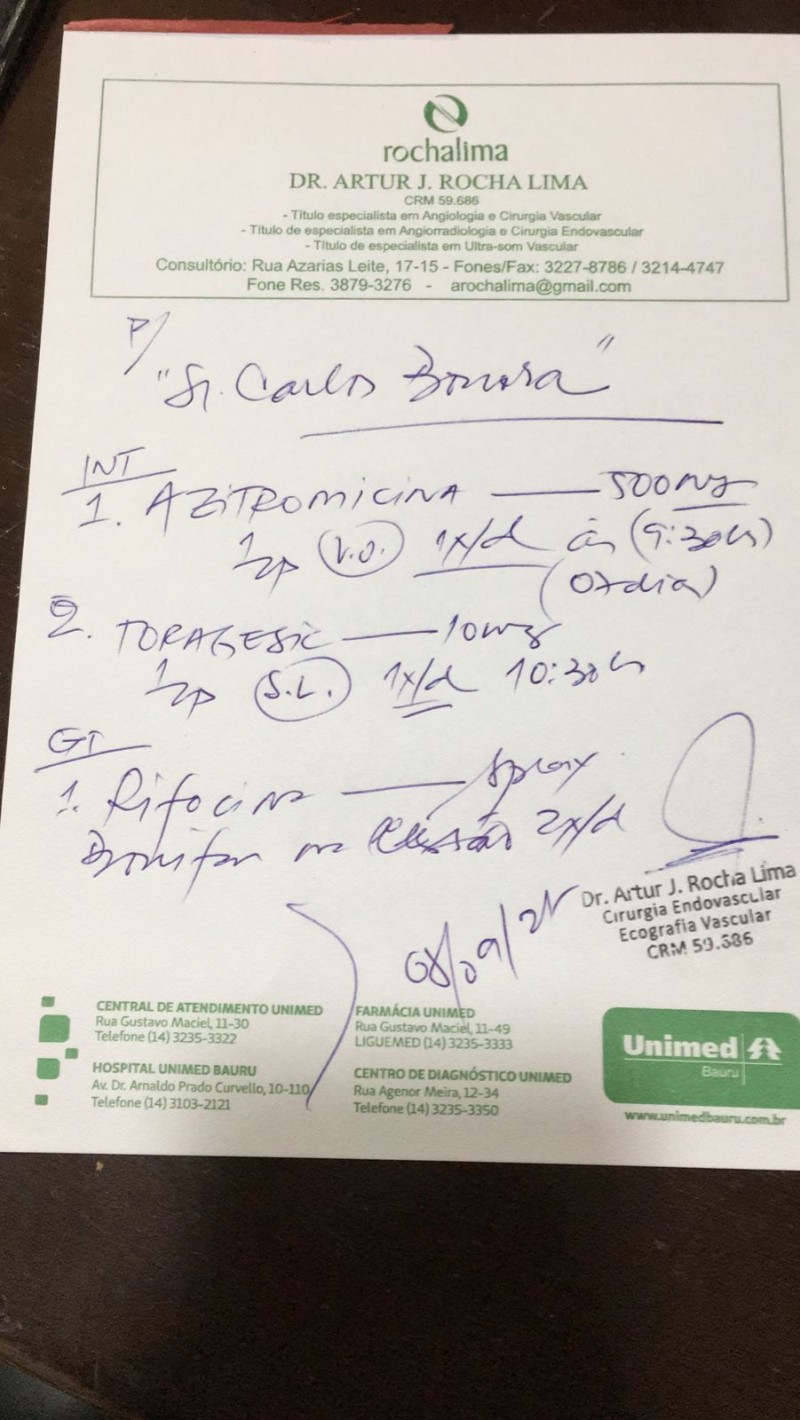 rochalima
DR. ARTUR J. ROCHA LIMA
CRM 59.686
- Título especialista em Angiologia e Cirurgia Vascular
- Título de especialista em Angiorradiologia e Cirurgia Endovascular
- Título de especialista em Ultra-som Vascular
Consultório: Rua Azarias Leite, 17-15 - Fones/Fax: 3227-8786 / 3214-4747
Fone Res. 3879-3276 - arochalima@gmail.com
P/
"Sr. Carlos
INT
1. AZITROMICINA —— 500mg
1cp (V.O.) 1x/d às (9:30hs)
(07 dias)
2. TORAGESIC —— 10mg
1cp (S.L.) 1x/d 10:30hs
1. Rifocina —— spray
na 2x/d
08/09/21
Dr. Artur J. Rocha Lima
Cirurgia Endovascular
Ecografia Vascular
CRM 59.686
CENTRAL DE ATENDIMENTO UNIMED
Rua Gustavo Maciel, 11-30
Telefone (14) 3235-3322
HOSPITAL UNIMED BAURU
Av. Dr. Arnaldo Prado Curvello, 10-110
Telefone (14) 3103-2121
FARMÁCIA UNIMED
Rua Gustavo Maciel, 11-49
LIGUEMED (14) 3235-3333
CENTRO DE DIAGNÓSTICO UNIMED
Rua Agenor Meira, 12-34
Telefone (14) 3235-3350
Unimed
Bauru
www.unimedbauru.com.br